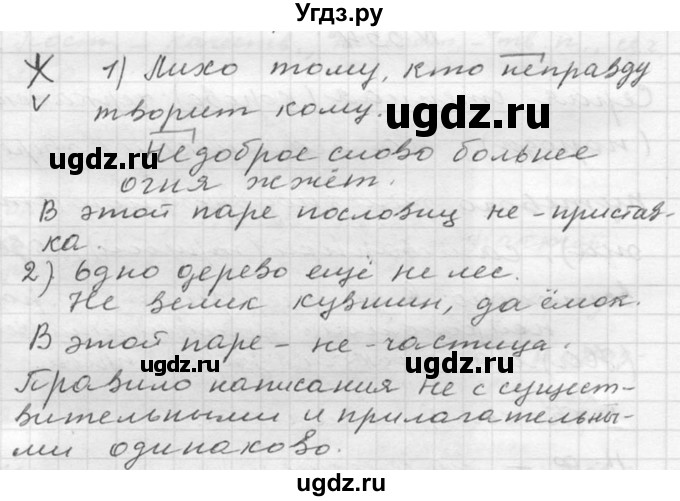 Угдз.ру
Ж 1) Лихо тому, кто неправду
v творит кому.
Недоброе слово больнее
огня жжёт.
В этой паре пословиц не - пристав-
ка.
2) Одно дерево ещё не лес.
Не велик кувшин, да ёмок.
В этой паре - не - частица.
Правило написания не с сущест-
вительными и прилагательны-
ми одинаково.
ugdz.ru
ugdz.ru
ugdz.ru
ugdz.ru
ugdz.ru
ugdz.ru
Угдз.ру